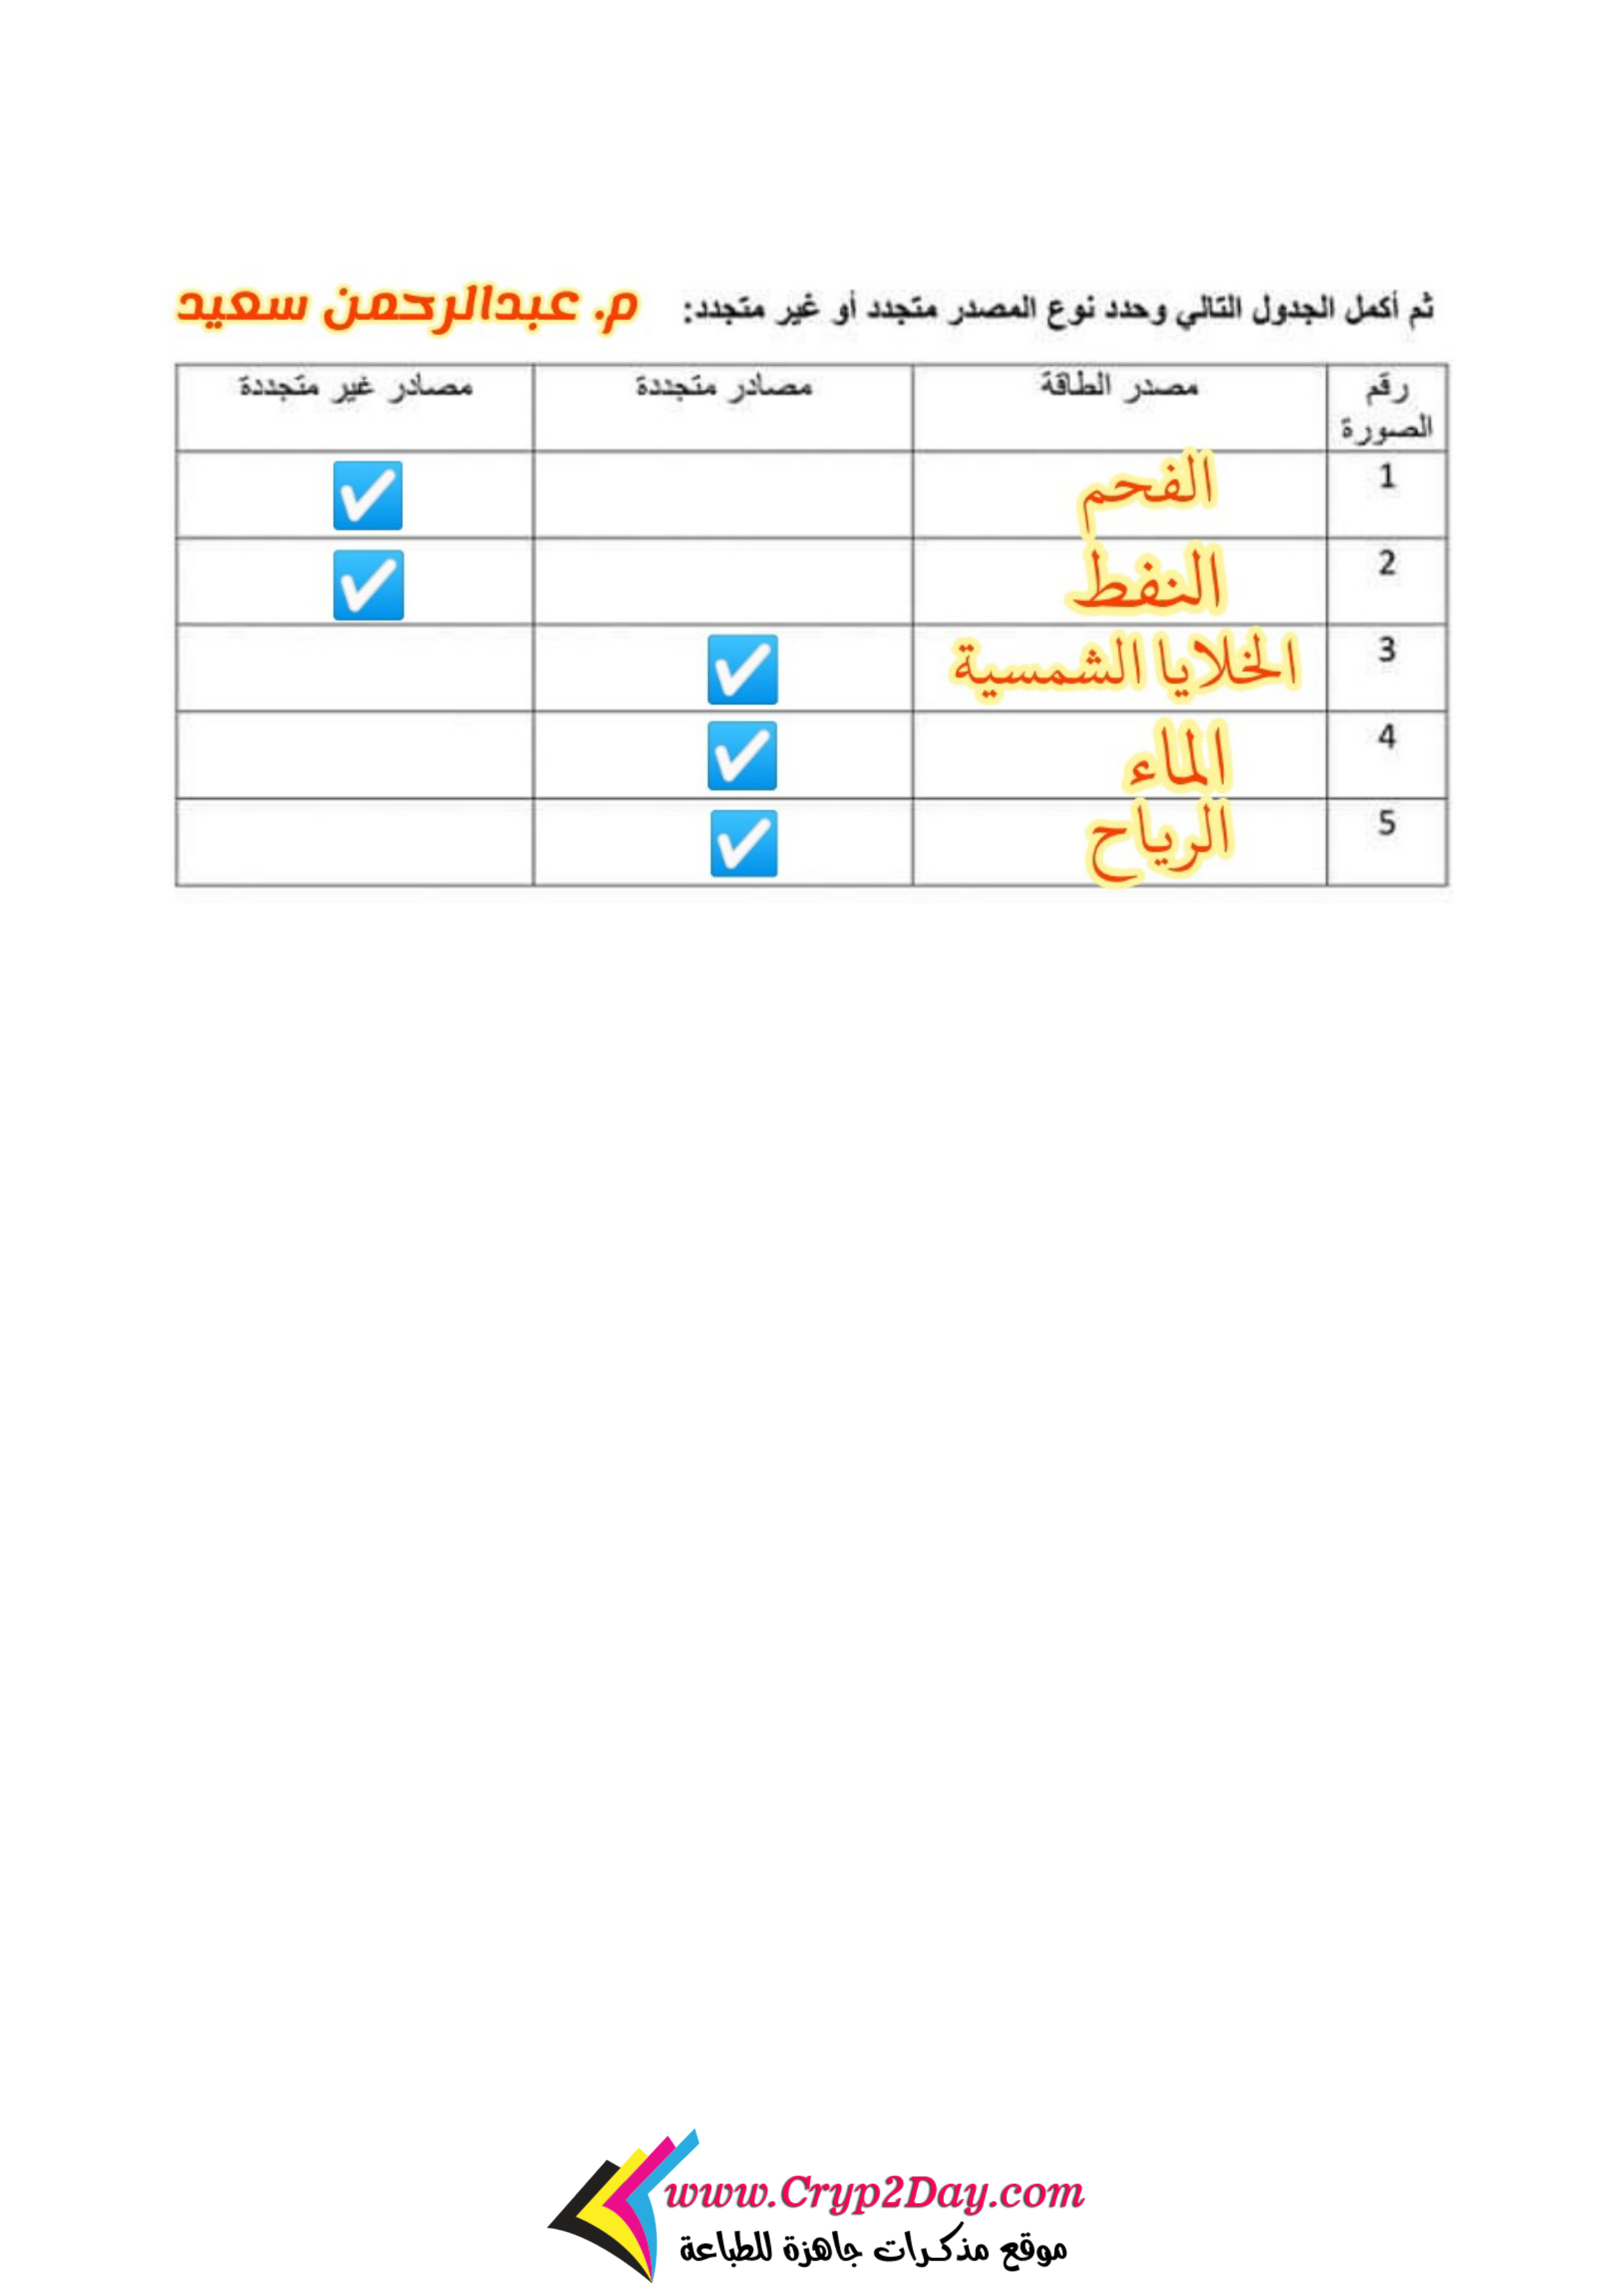 ثم أكمل الجدول التالي وحدد نوع المصدر متجدد أو غير متجدد: م. عبدالرحمن سعيد
رقم الصورة مصدر الطاقة مصادر متجددة مصادر غير متجددة
1 الفحم ✅
2 النفط ✅
3 الخلايا الشمسية ✅
4 الماء ✅
5 الرياح ✅
www.Cryp2Day.com
موقع مذكرات جاهزة للطباعة